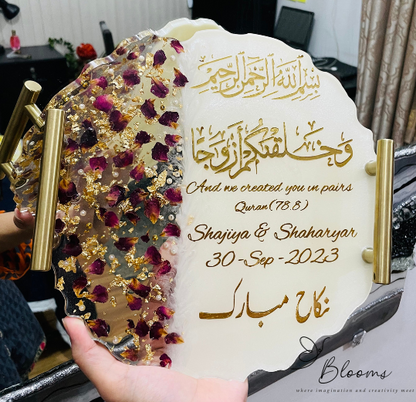 بسم الله الرحمن الرحيم
وخلقنكم أزوجا
And we created you in pairs
Quran (78:8)
Shajiya & Shaharyar
30-Sep-2023
نکاح مبارک
Blooms
where imagination and creativity meet